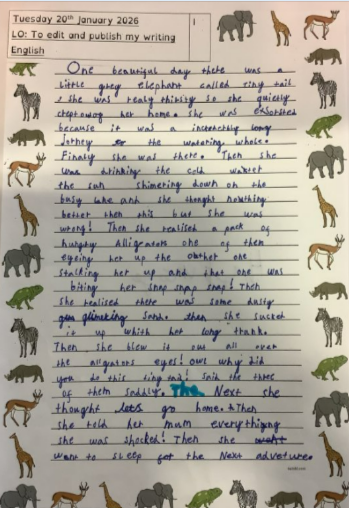 Tuesday 20th January 2026
1
LO: To edit and publish my writing
English
One beautiful day there was a
little grey elephant called tiny tail
, she was realy thirsty so she quietly
steptoway her home. she was exsorsted
because it was a increactly long
Jorney to the watering whole.
Finaly she was there. Then she
was drinking the cold water
the sun shimering down on the
busy lake and she thought nowthing
better then this but she was
wrong! Then she realised a pack of
hungry Alligators one of them
eyeing her up the obther one
stalking her up and that one was
biting her snap snap snap! Then
she realised there was some dusty
glincking sand. then she sucked
it up which her long thank.
Then she blew it out all over
the alligators eyes! ow! why did
you do this tiny tail! Said the three
of them saddly. The Next she
thought lets go home. Then
she told her mum everythigng
she was shocked! Then she went
went to sleep for the Next adventure.